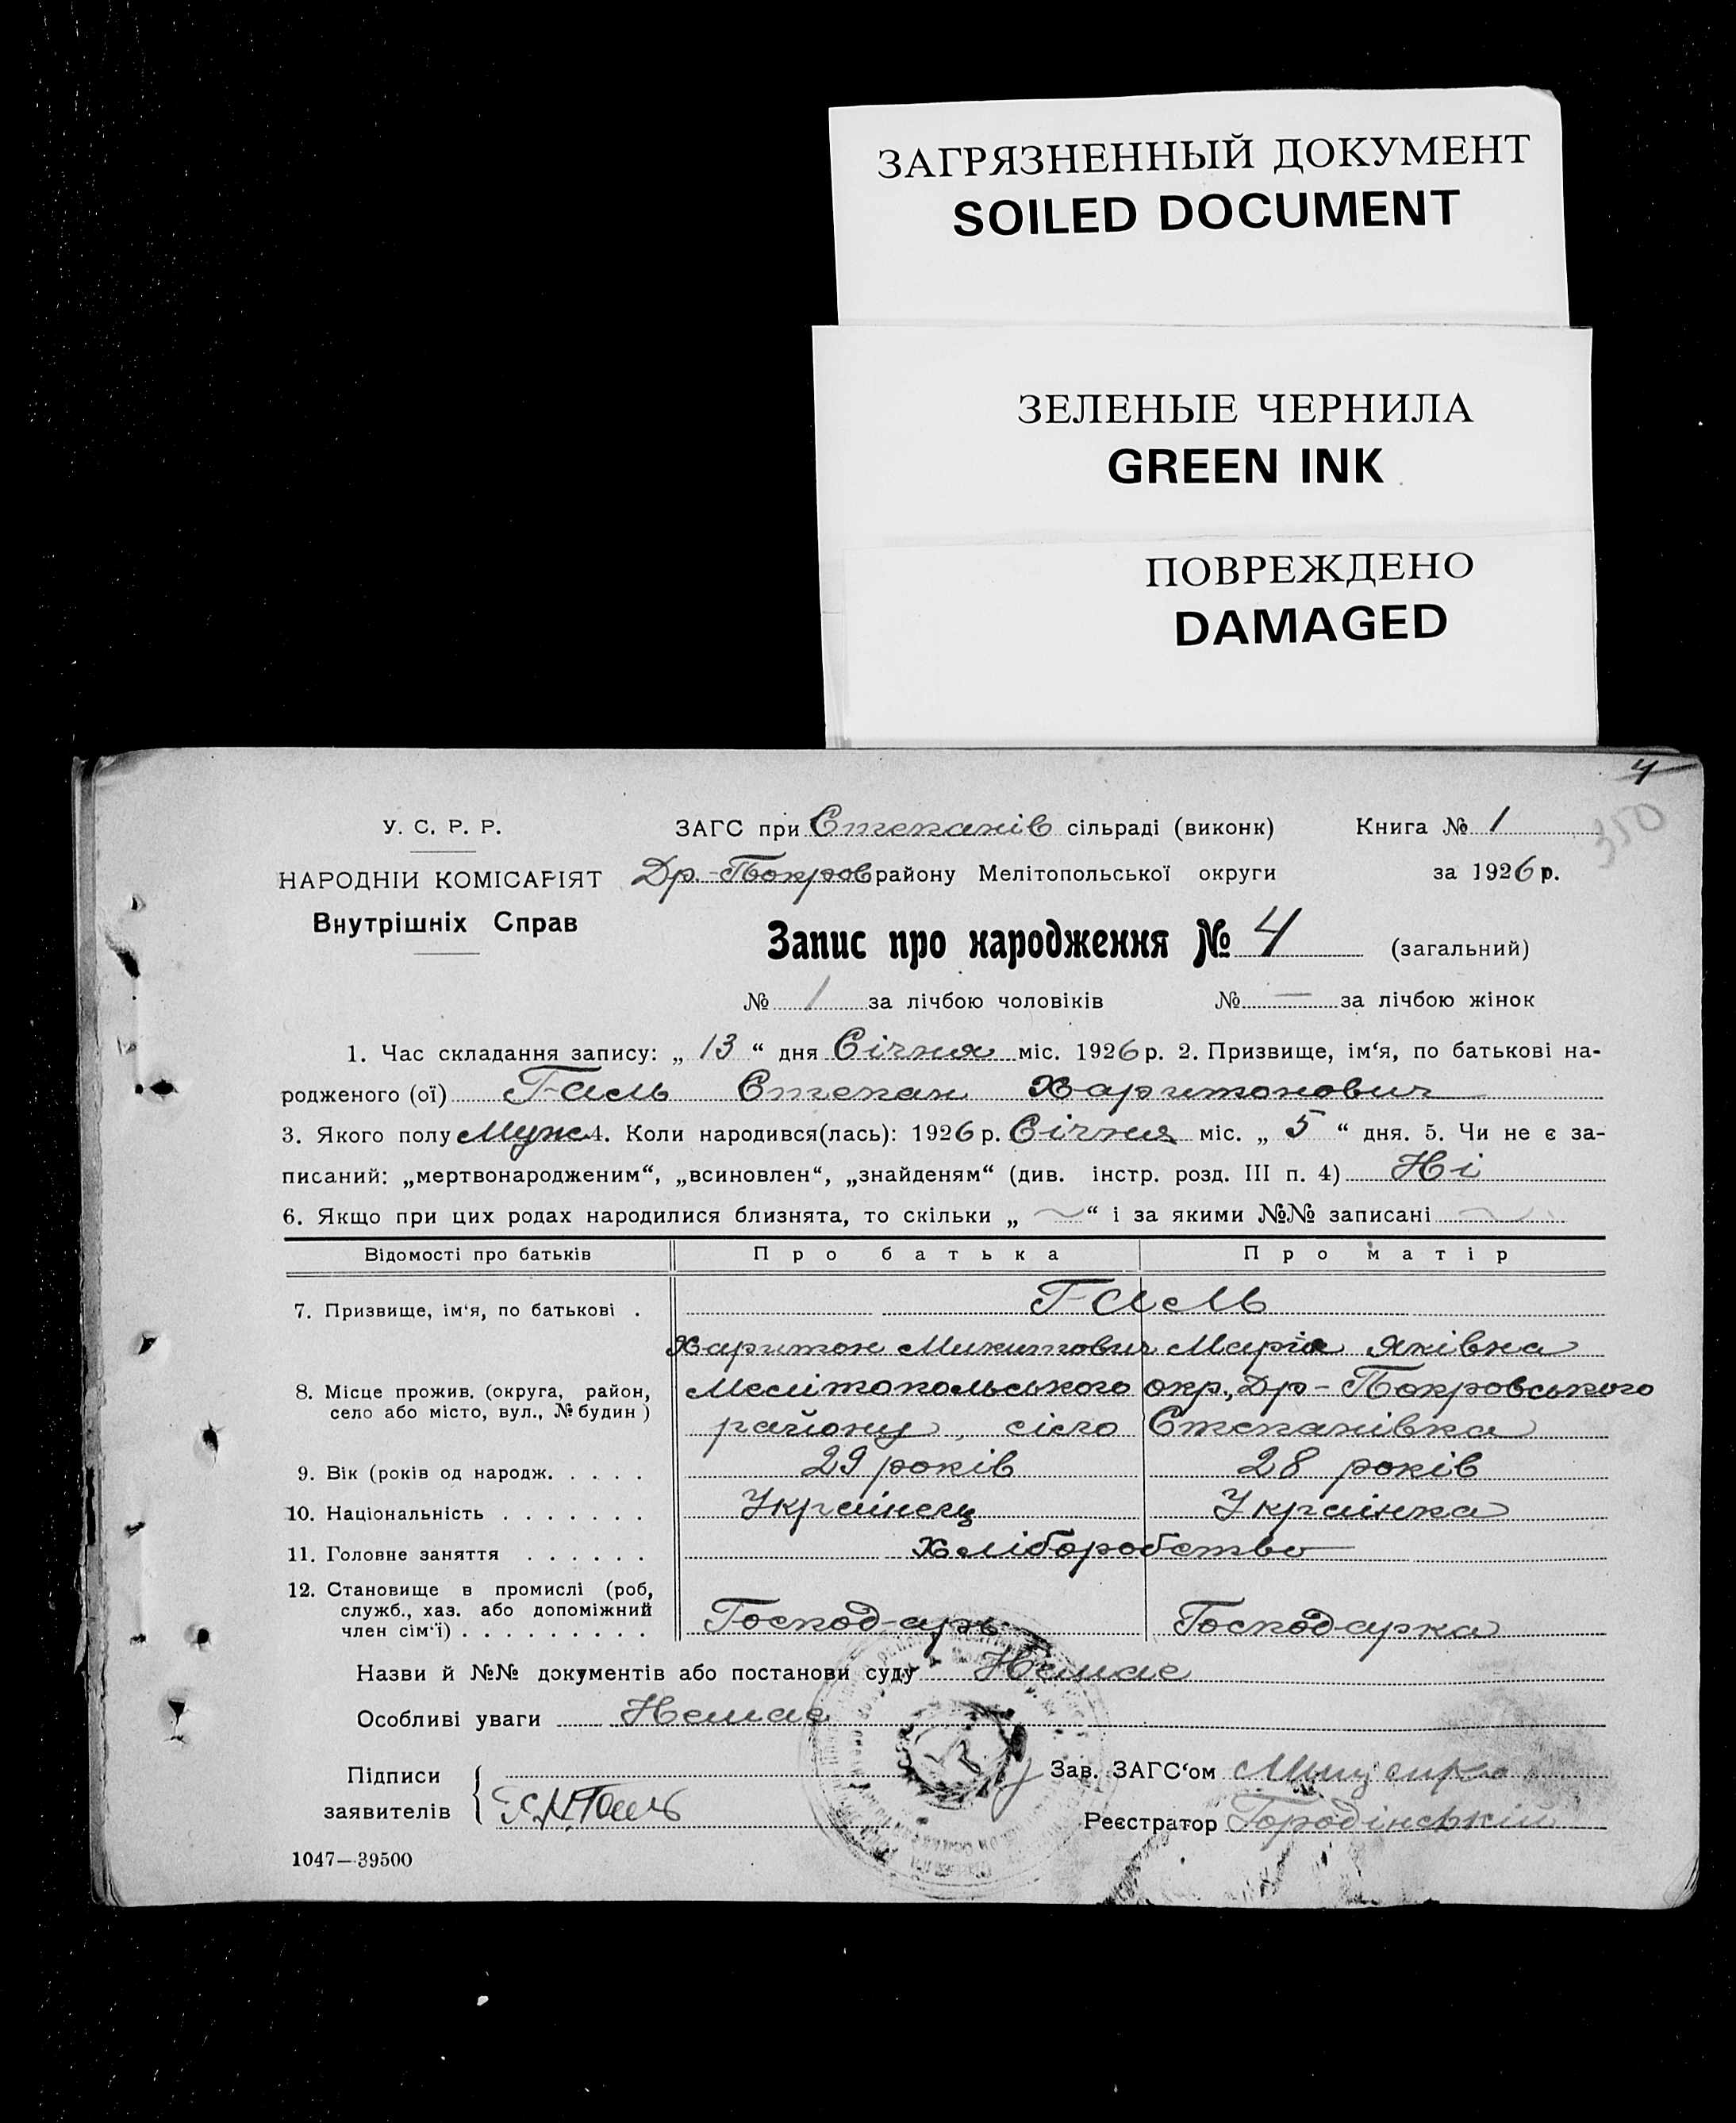 ЗАГРЯЗНЕННЫЙ ДОКУМЕНТ
SOILED DOCUMENT
ЗЕЛЕНЫЕ ЧЕРНИЛА
GREEN INK
ПОВРЕЖДЕНО
DAMAGED
4
350
У. С. Р. Р.
НАРОДНІИ КОМІСАРІЯТ
Внутрішніх Справ
ЗАГС при Степанів сільраді (виконк) Книга № 1
Др.-Покров району Мелітопольської округи за 1926 р.
Запис про народження № 4 (загальний)
№ 1 за лічбою чоловіків № — за лічбою жінок
1. Час складання запису: „ 13 “ дня Січня міс. 1926 р. 2. Призвище, ім‘я, по батькові на-
родженого (ої) Галь Степан Харитонович
3. Якого полу Муж 4. Коли народився(лась): 1926 р. Січня міс. „ 5 “ дня. 5. Чи не є за-
писаний: „мертвонародженим“, „всиновлен“, „знайденям“ (див. інстр. розд. III п. 4) Ні
6. Якщо при цих родах народилися близнята, то скільки „ ~ “ і за якими №№ записані ~
Відомості про батьків Про батька Про матір
7. Призвище, ім‘я, по батькові . Галь
Харитон Микитович Марія Яківна
8. Місце прожив. (округа, район, Мелітопольського окр., Др-Покровського
село або місто, вул., № будин ) району, сіло Степанівка
9. Вік (років од народж. . . . . 29 років 28 років
10. Національність . . . . . . . Українец Українка
11. Головне заняття . . . . . . Хліборобство
12. Становище в промислі (роб,
служб., хаз. або допоміжний
член сім‘ї) . . . . . . . . . Господарь Господарка
Назви й №№ документів або постанови суду Немає
Особливі уваги Немає
Підписи
заявителів Х.М.Галь
Зав. ЗАГС‘ом
Реєстратор Городінський
1047—39500